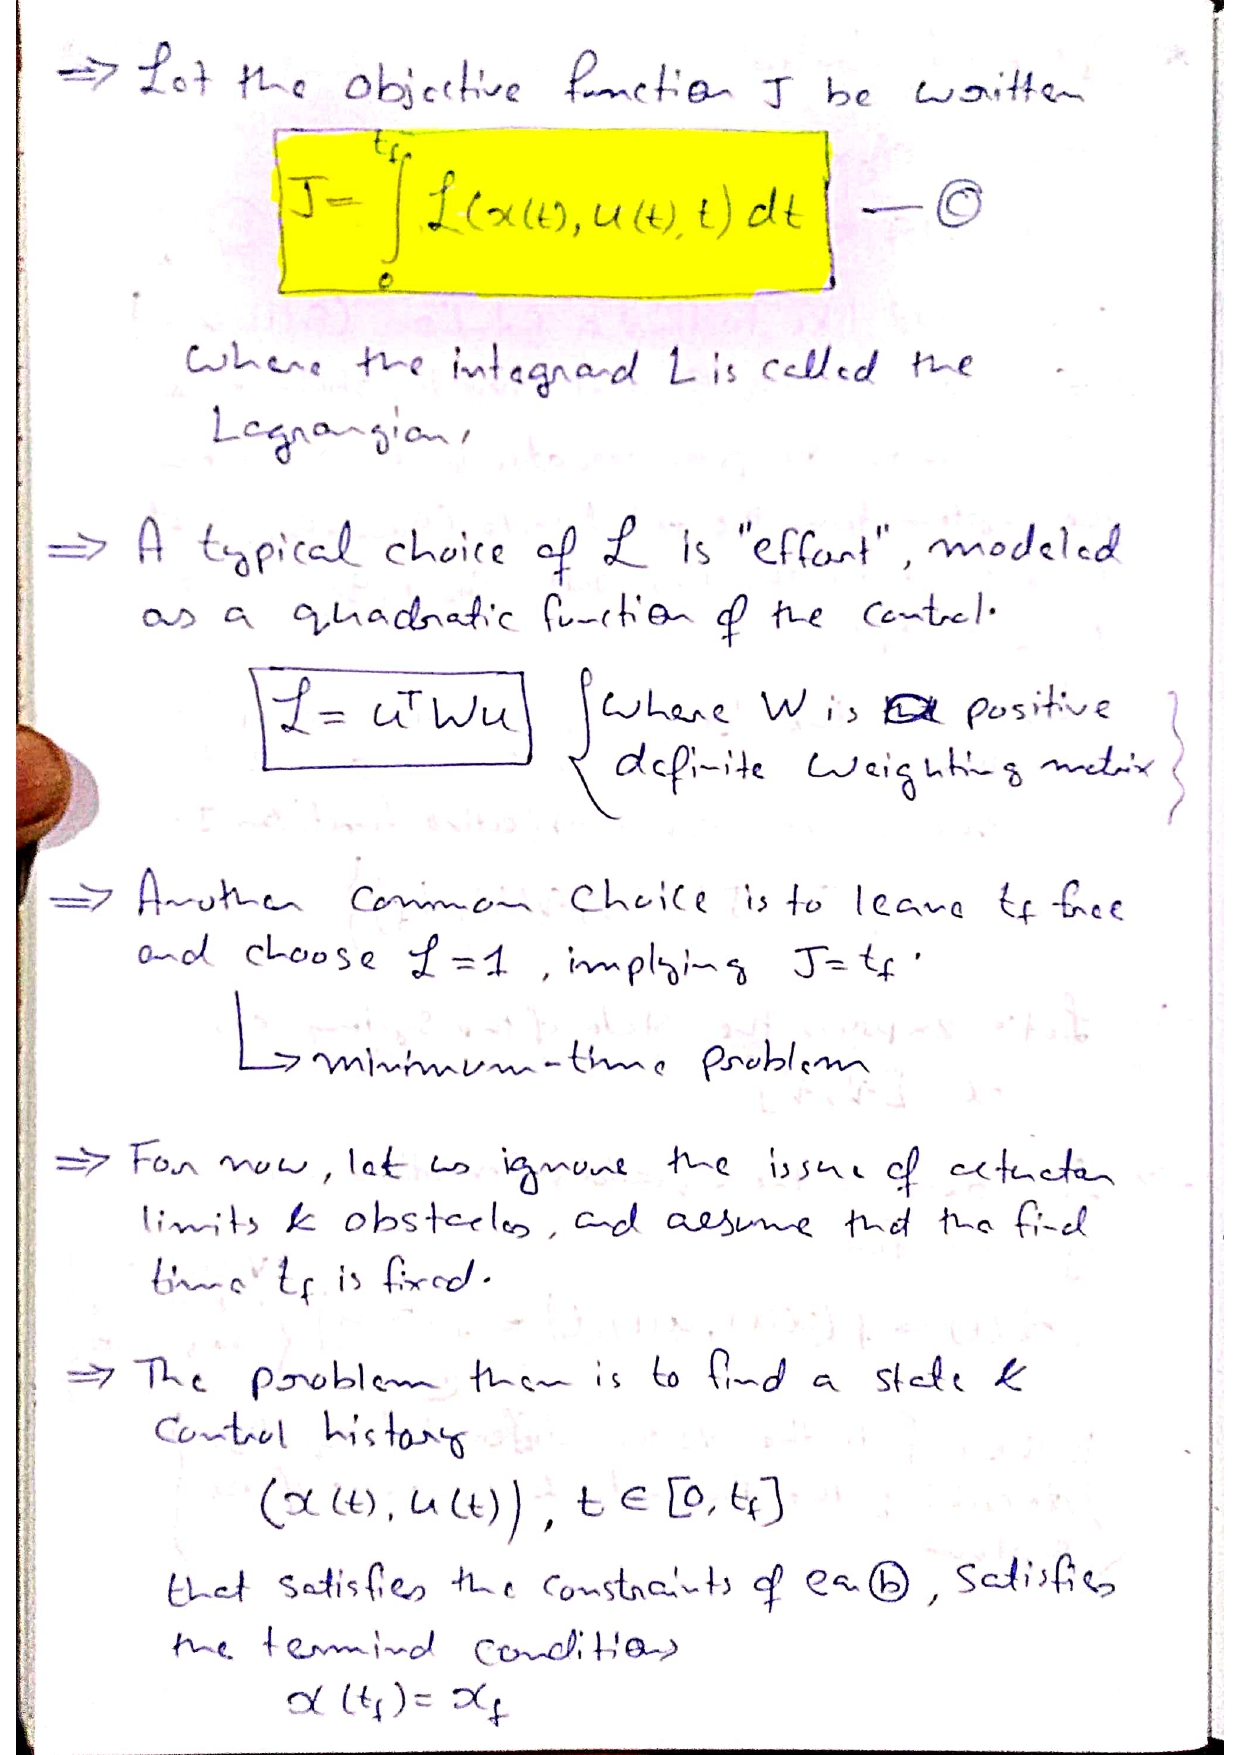 ⇒ Let the objective function J be written
J = ∫₀^{t_f} ℒ(x(t), u(t), t) dt — ⓒ
where the integrand L is called the
Lagrangian,
⇒ A typical choice of ℒ is "effort", modeled
as a quadratic function of the control.
ℒ = uᵀWu { where W is positive
definite weighting matrix }
⇒ Another common choice is to leave t_f free
and choose ℒ = 1, implying J = t_f.
↳ minimum-time problem
⇒ For now, let us ignore the issue of actuator
limits & obstacles, and assume that the final
time t_f is fixed.
⇒ The problem then is to find a state &
control history
(x(t), u(t)), t ∈ [0, t_f]
that satisfies the constraints of eq ⓑ, satisfies
the terminal conditions
x(t_f) = x_f